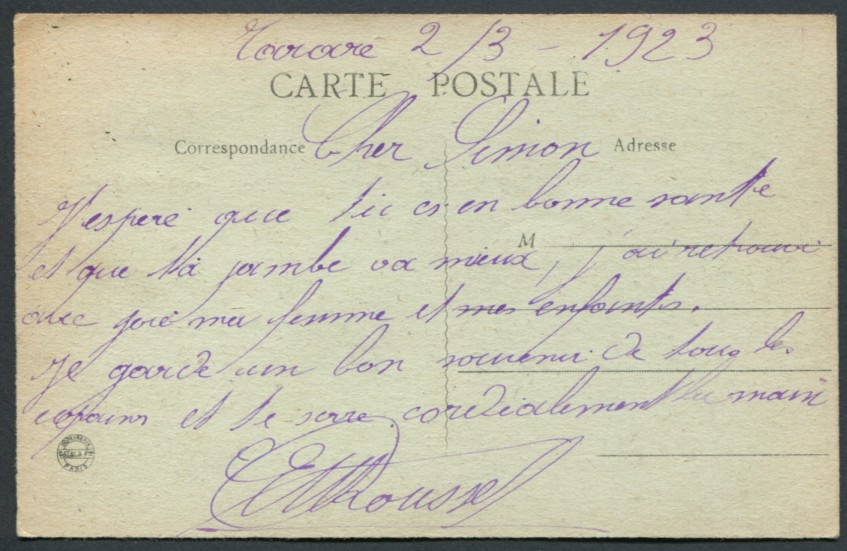 Tarare 2/3 - 1923
CARTE POSTALE
Correspondance Cher Simon Adresse
J'espere que tu es en bonne sante
M
et que ta jambe va mieux, j'ai retrouvé
avec joie ma femme et mes enfants.
Je garde un bon souvenir de tous les
copains et te serre cordialement la main
Rousset
PARIS